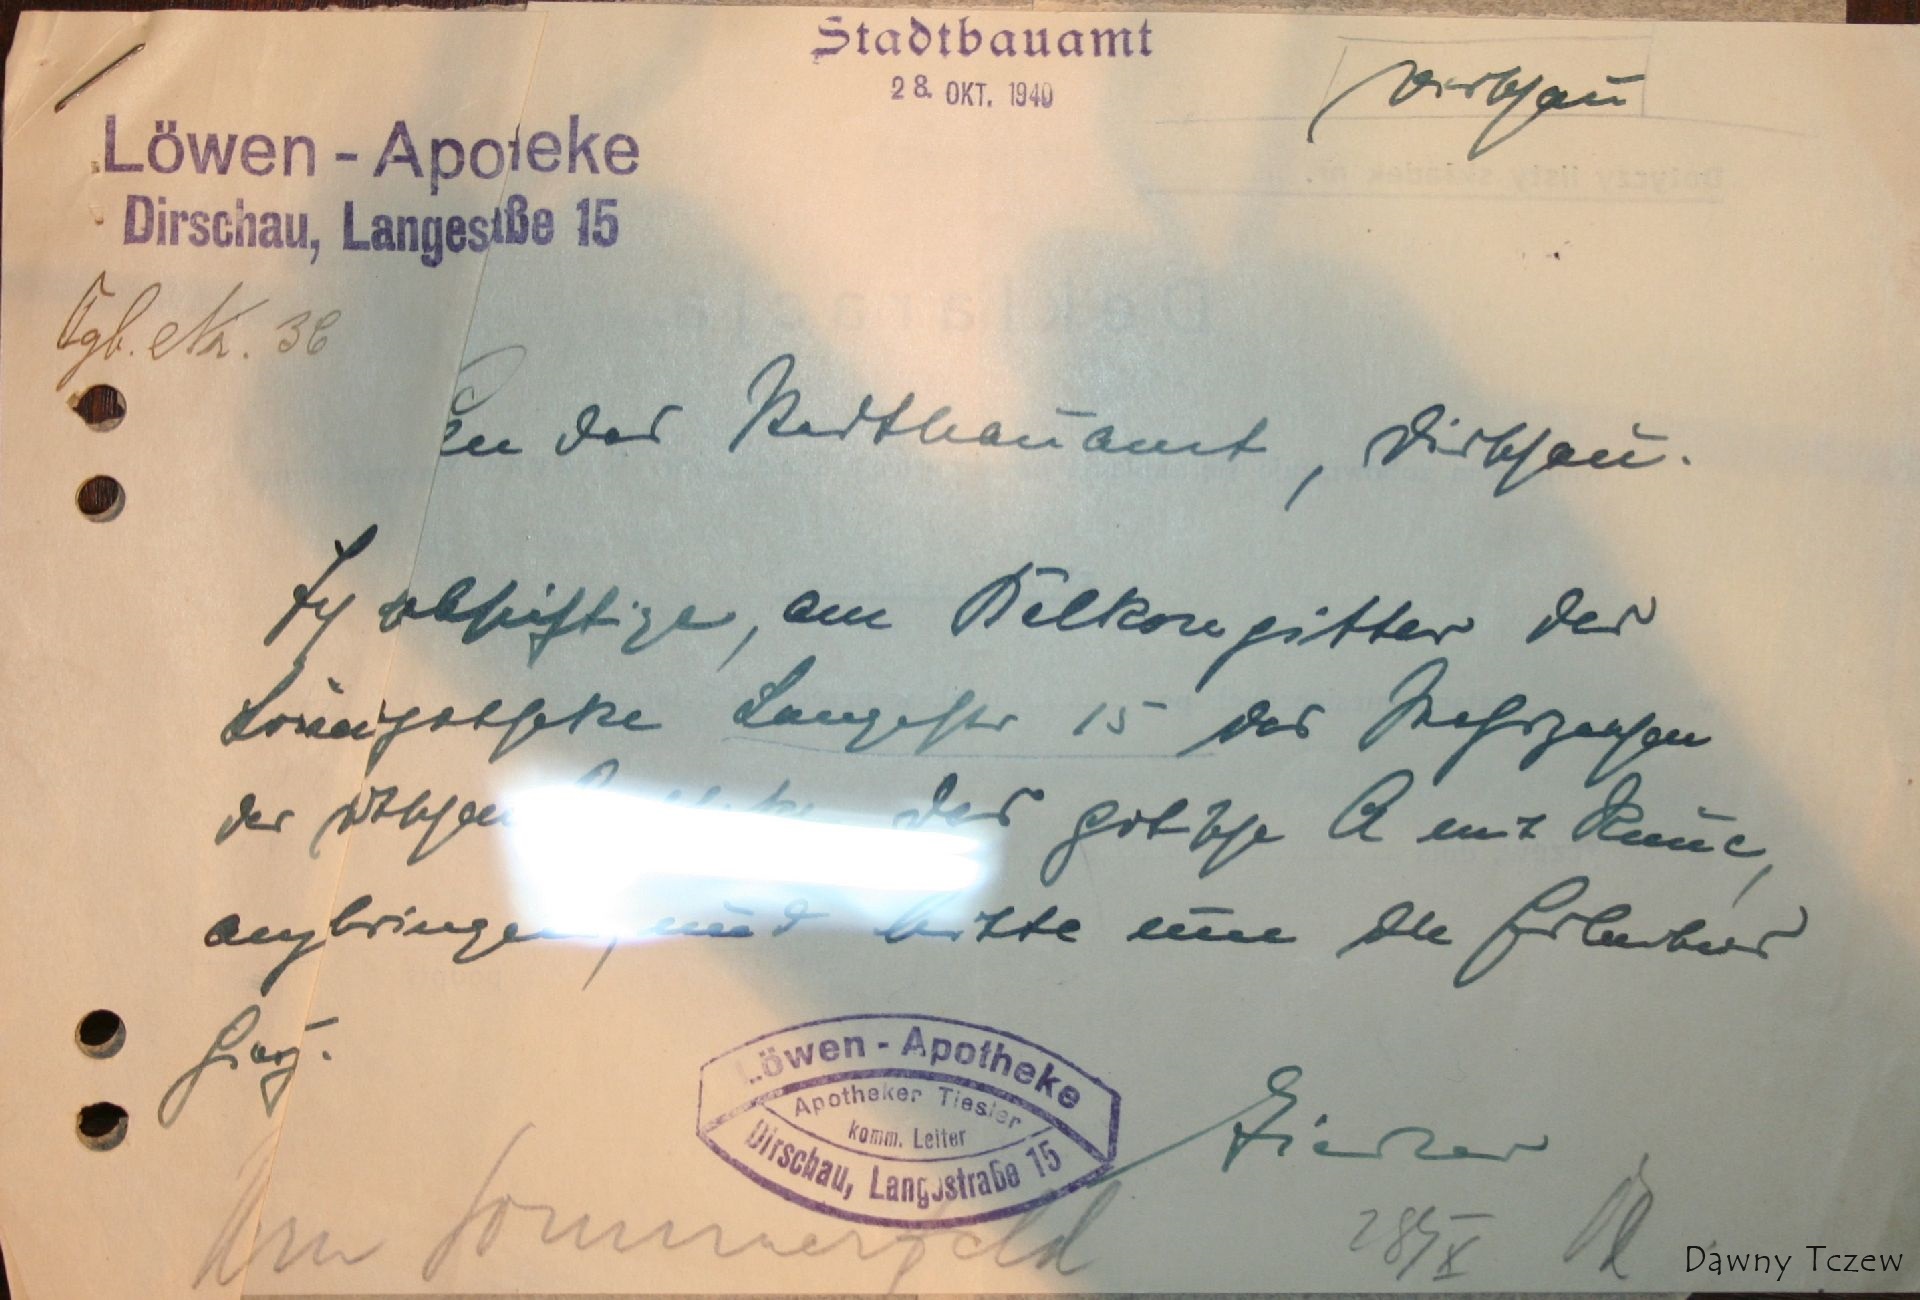 Stadtbauamt
28. OKT. 1940
Dirschau
Löwen - Apoteke
Dirschau, Langestße 15
Tgb. Nr. 36
An das Stadtbauamt, Dirschau.
Ich beabsichtige, am Balkongitter der
Löwenapotheke Langestr 15 das Wahrzeichen
der deutschen Apotheke das gotische A mit Rune,
anzubringen, und bitte um die Erlaubnis
hierzu.
Löwen - Apotheke
Apotheker Tiesler
komm. Leiter
Dirschau, Langestraße 15
Tiesler
Herrn Sommerfeld
28/X
Dawny Tczew